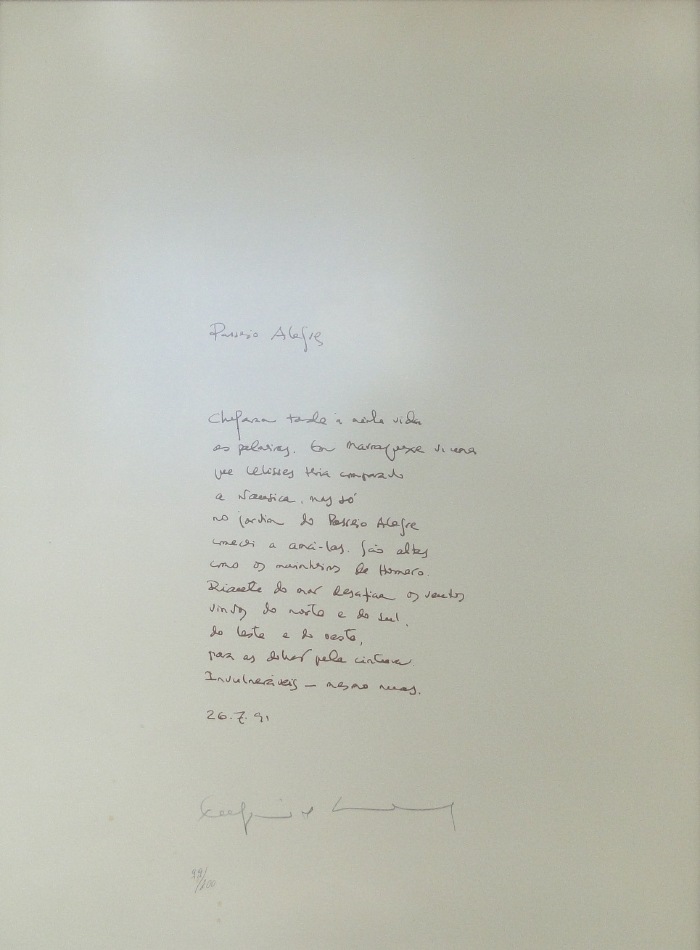 Passeio Alegre
Chegaram tarde à minha vida
as palmeiras. Em Marraquexe vi uma
que Ulisses teria comparado
a Nausica, mas só
no jardim do Passeio Alegre
comecei a amá-las. São altas
como os marinheiros de Homero.
Diante do mar desafiam os ventos
vindos do norte e do sul,
do leste e do oeste,
para as dobrar pela cintura.
Invulneráveis — mesmo nuas.
26.7.91
99/100